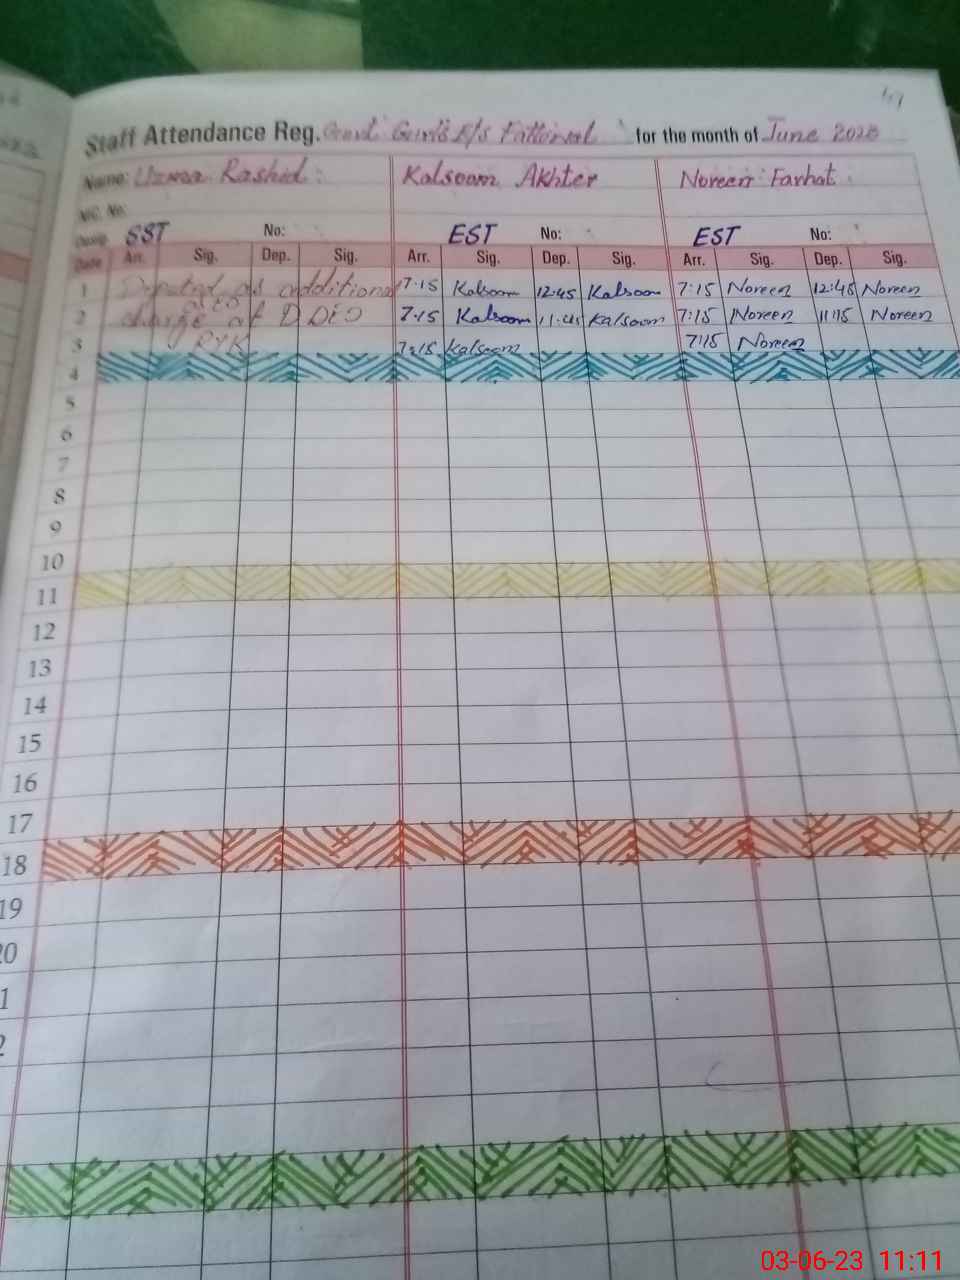 Staff Attendance Reg. Govt. Girls E/S for the month of June 2023
Name: Uzma Rashid : Kalsoom Akhter Noreen Farhat
N.I.C. No.
Desig. SST No: EST No: EST No:
Date Arr. Sig. Dep. Sig. Arr. Sig. Dep. Sig. Arr. Sig. Dep. Sig.
1 Deputed as additional 7:15 Kalsoom 12:45 Kalsoom 7:15 Noreen 12:45 Noreen
2 charge of 7:15 Kalsoom 11:45 Kalsoom 7:15 Noreen 11:15 Noreen
3 RYK 7:15 Kalsoom 7:15 Noreen
4
5
6
7
8
9
10
11
12
13
14
15
16
17
18
19
20
1
2
03-06-23 11:11